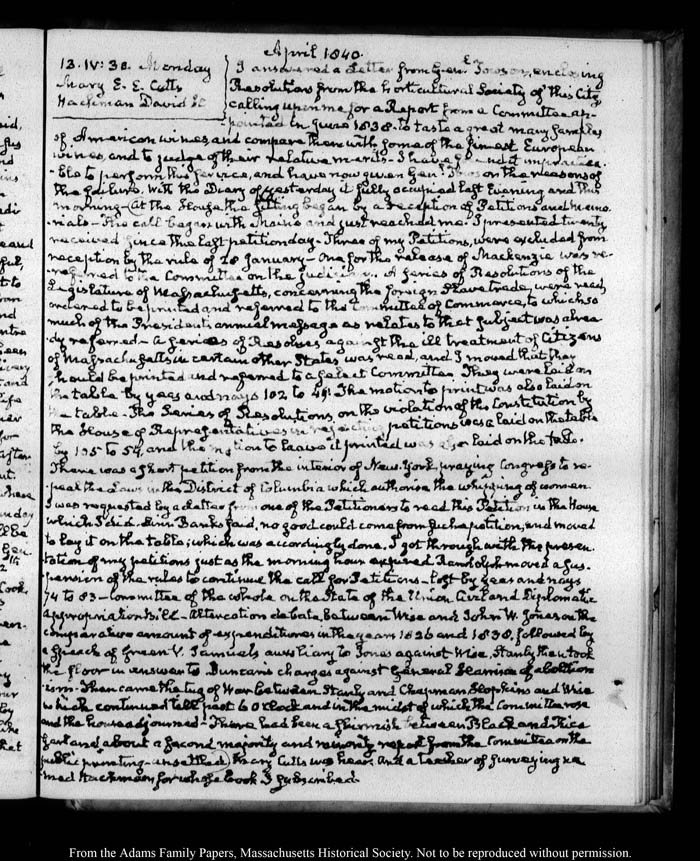 April 1840.
13. IV: 30. Monday
Mary E. E. Cutts
Hackman David
I answered a Letter from Gen. Towson, enclosing
Resolutions from the horticultural Society of this City
calling upon me for a Report from a Committee ap-
-pointed in June 1838. to taste a great many samples
of American wines, and compare them with some of the finest European
wines, and to judge of their relative merits- I have found it impractica-
-ble to perform this service, and have now given Gen. Towson the reasons of
the failure. With the Diary of yesterday it fully occupied last Evening and this
morning- At the House the sitting began by a reception of Petitions and memo-
rials- The call began with Maine and just reached me. I presented twenty
received since the last petition day- Three of my Petitions, were excluded from
reception by the rule of 28 January- One for the release of Mackenzie was re-
-referred to the Committee on the Judiciary. A series of Resolutions of the
Legislature of Massachusetts, concerning the foreign slave trade, were read
ordered to be printed and referred to the Committee of Commerce, to which so
much of the President's annual message as relates to that subject was alrea-
dy referred- A series of Resolves against the ill treatment of Citizens
of Massachusetts in certain other States was read, and I moved that they
should be printed and referred to a select Committee. They were laid on
the table by yeas and nays 102 to 40. The motion to print was also laid on
the table. The Series of Resolutions, on the violation of the Constitution by
the House of Representatives in rejecting petitions was laid on the table
by 105 to 54, and the motion to leave it printed was also laid on the table.
There was a short petition from the interior of New-York, praying Congress to re-
-peal the Laws in the District of Columbia which authorise the whipping of women
I was requested by a Letter from one of the Petitioners to read this Petition in the House
which I did. Linn Banks said, no good could come from such a petition, and moved
to lay it on the table; which was accordingly done. I got through with the presen-
tation of my petitions just as the morning hour expired Randolph moved a sus-
pension of the rules to continue the call for Petitions- lost by yeas and nays
74 to 83- Committee of the whole on the State of the Union, Civil and Diplomatic
appropriation bill- Altercation debate, between Wise and John W. Jones on the
comparative amount of expenditures in the years 1826 and 1838, followed by
a speech of Green V. Samuels auxiliary to Jones against Wise. Stanly then took
the floor in answer to Duncan's charges against General Harrison of abolition
-ism. Then came the tug of War between Stanly and Chapman Hopkins and Wise
which continued till past 6 O'Clock and in the midst of which the Committee rose
and the house adjourned- There had been a skirmish between Black and Rice
Garland about a second majority and minority report from the Committee on the
public printing- unsettled. Mary Cutts was here. And a teacher of surveying na-
med Hackman for whose book I subscribed.
From the Adams Family Papers, Massachusetts Historical Society. Not to be reproduced without permission.